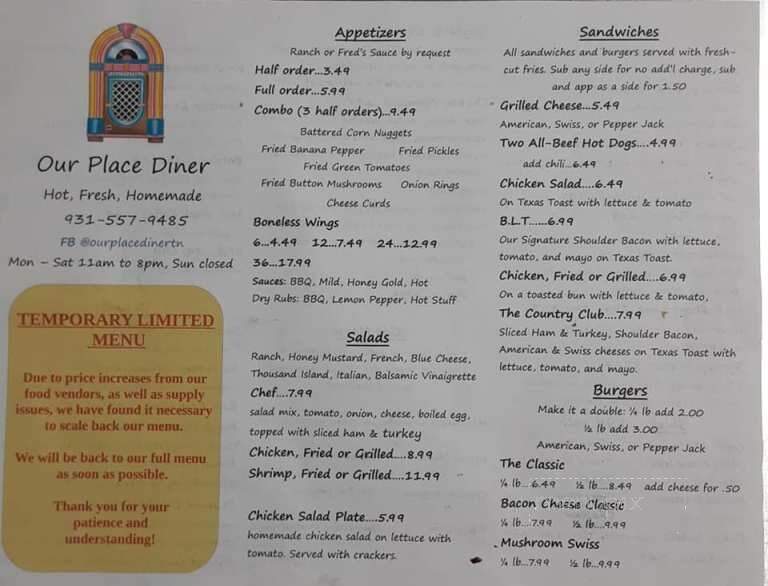 Our Place Diner
Hot, Fresh, Homemade
931-557-9485
FB @ourplacedinertn
Mon – Sat 11am to 8pm, Sun closed
TEMPORARY LIMITED
MENU
Due to price increases from our
food vendors, as well as supply
issues, we have found it necessary
to scale back our menu.
We will be back to our full menu
as soon as possible.
Thank you for your
patience and
understanding!
Appetizers
Ranch or Fred's Sauce by request
Half order...3.49
Full order...5.99
Combo (3 half orders)...9.49
Battered Corn Nuggets
Fried Banana Pepper Fried Pickles
Fried Green Tomatoes
Fried Button Mushrooms Onion Rings
Cheese Curds
Boneless Wings
6...4.49 12...7.49 24...12.99
36...17.99
Sauces: BBQ, Mild, Honey Gold, Hot
Dry Rubs: BBQ, Lemon Pepper, Hot Stuff
Salads
Ranch, Honey Mustard, French, Blue Cheese,
Thousand Island, Italian, Balsamic Vinaigrette
Chef...7.99
salad mix, tomato, onion, cheese, boiled egg,
topped with sliced ham & turkey
Chicken, Fried or Grilled....8.99
Shrimp, Fried or Grilled....11.99
Chicken Salad Plate....5.99
homemade chicken salad on lettuce with
tomato. Served with crackers.
Sandwiches
All sandwiches and burgers served with fresh-
cut fries. Sub any side for no add'l charge, sub
and app as a side for 1.50
Grilled Cheese...5.49
American, Swiss, or Pepper Jack
Two All-Beef Hot Dogs....4.99
add chili...6.49
Chicken Salad....6.49
On Texas Toast with lettuce & tomato
B.L.T......6.99
Our Signature Shoulder Bacon with lettuce,
tomato, and mayo on Texas Toast.
Chicken, Fried or Grilled....6.99
On a toasted bun with lettuce & tomato,
The Country Club....7.99
Sliced Ham & Turkey, Shoulder Bacon,
American & Swiss cheeses on Texas Toast with
lettuce, tomato, and mayo.
Burgers
Make it a double: ¼ lb add 2.00
½ lb add 3.00
American, Swiss, or Pepper Jack
The Classic
¼ lb...6.49 ½ lb...8.49 add cheese for .50
Bacon Cheese Classic
¼ lb...7.99 ½ lb...9.99
Mushroom Swiss
¼ lb...7.99 ½ lb...9.99